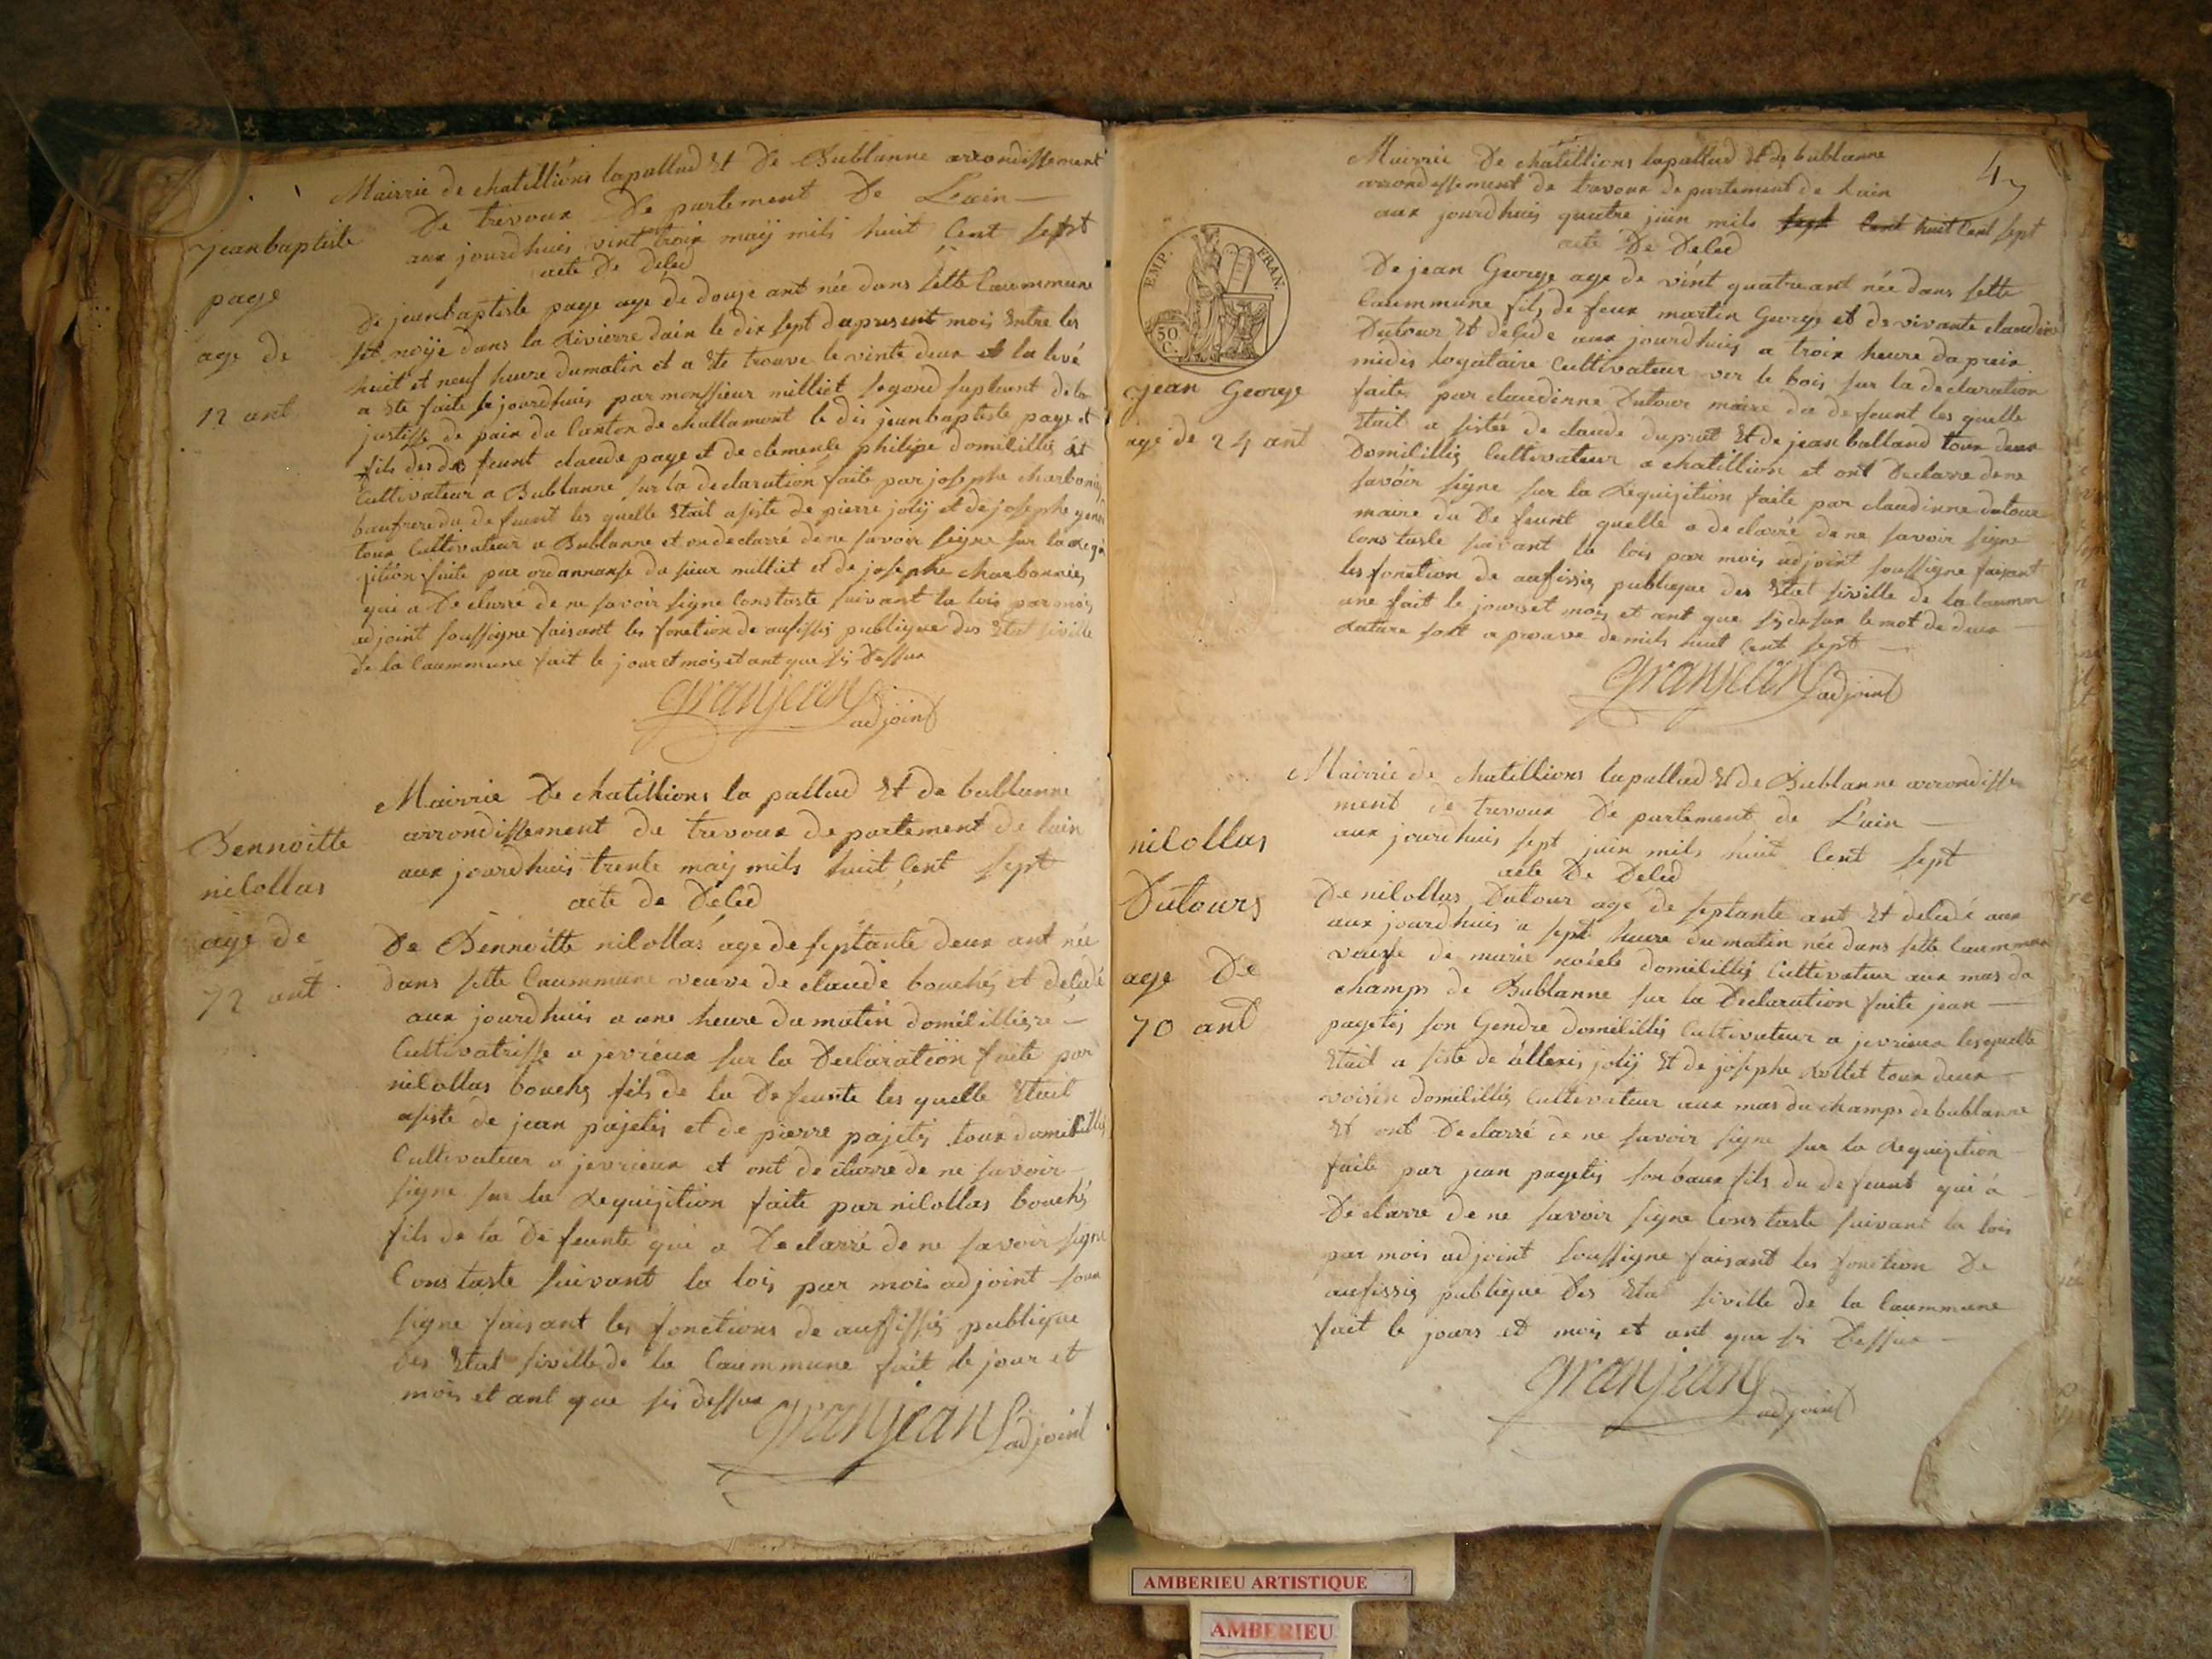 Mairrie de chatillións lapallud Et De Bublanne arrondissement
De trevoux De partement De L'ain
aux jourdhuis vint troix maÿ mils huit Cent sept
acte De deced
jeanbaptiste
page
age de
12 ant
De jeanbaptiste page age de douze ant née dans sette Caummune
set noÿe dans la Rivierre dain le dix sept du present mois Entre les
huit et neuf heure dumatin et a Ete trouve le vinte deux et la levé
a Ete faite se jourdhuis par monssieur milliet segond supleant de la
justisse de paix du Canton de challamont le dis jeanbaptiste page et
fils des de feunt claude page et de clemence philipe domicilliés et
Cultivateur a Bublanne sur la declaration faite par josephe charbonnié
baufrere du defeunt les quelle Etait asiste de pierre jolÿ et de josephe
toux Cultivateur a Bublanne et on declarré de ne savoir signe sur la Requi
zition faite par ordannanse du sieur milliet et de josephe charbonniés
qui a De clarré de ne savoir signe Constaste suivant la lois par mois
adjoint soussigne faisant les fonction de aufissiés publique des Etat siville
de la Caummune fait le jour et mois et ant que sis Dessux
granjean adjoint
Mairrie De chatillions la pallud Et de bublanne
arrondissement de trevoux de partement de lain
aux jourdhuis trente maÿ mils huit Cent sept
acte de Déced
Bennoitte
nicollas
age de
72 ant
De Bennoitte nicollas age de septante deux ant née
dans sette Caummune veuve de claude bouché et decedé
aux jourdhuis a une heure du matin domicilliere
Cultivatrisse a jevrieux sur la Declaration faite par
nicollas bouché fils de la De feunte les quelle Etait
asiste de jean pajetis et de pierre pajetis toux domicilliés
Cultivateur a jevrieux et ont de clarre de ne savoir
signe sur la Requizition faite par nicollas bouché
fils de la De feunte qui a De clarré de ne savoir signe
Constaste suivant la lois par mois adjoint sous
signe faisant les fonctions de auffissiés publique
des Etat siville de la Caummune fait le jour et
mois et ant que sis dessux
granjean adjoint
47
Mairrie De chatillions lapallud et de bublanne
arrondissement de trevoux de partement de lain
aux jourdhuis quatre juin mils sept Cent huit Cent sept
acte De Deced
EMP. FRAN.
50 C.
jean George
age de 24 ant
De jean George age de vint quatre ant née dans sette
Caummune fils de feux martin George et de vivante claudine
Dutour Et decede aux jourdhuis a troix heure da preix
midis logataire Cultivateur ver le bois sur la declaration
faite par claudinne Dutour maire du de feunt les quelle
Etait a sistée de claude dupret Et de jean balland toux deux
Domicilliés Cultivateur a chatillion et ont Declarre de ne
savoir signe sur la Requizition faite par claudinne dutour
maire du De feunt quelle a de clarré de ne savoir signe
Constaste suivant la lois par mois adjoint soussigne faisant
les fonction de aufissiés publique des Etat siville de la Caummu
une fait le jours et mois et ant que sis desux le mot de deux
Rature sont a prouve de mils huit Cent sept
granjean adjoint
Mairrie de chatillions lapallud Et de Bublanne arrondisse
ment de trevoux De partement de L'ain
aux jourdhuis sept juin mils huit Cent sept
acte De Deced
nicollas
Dutours
age De
70 ant
De nicollas Dutour age de septante ant Et decedé aux
aux jourdhuis a sept heure du matin née dans sette Caummune
veuse de marie domicilliés Cultivateur aux mas du
champs de Bublanne sur la Declaration faite jean
pagetis son Gendre domicilliés Cultivateur a jevrieux lesquelle
Etait a siste de allexis jolÿ Et de josephe Rollet toux deux
voisin domicilliés Cultivateur aux mas du champs de bublanne
Et ont Declarré de ne savoir signe sur la Requizition
faite par jean pagetis son baux fils du de feunt qui a
De clarre de ne savoir signe Constaste suivant la lois
par mois adjoint soussigne faisant les fonction De
aufissiés publique Des Etat siville de la Caummune
fait le jours et mois et ant que sis Dessux
granjean adjoint
AMBERIEU ARTISTIQUE
AMBERIEU